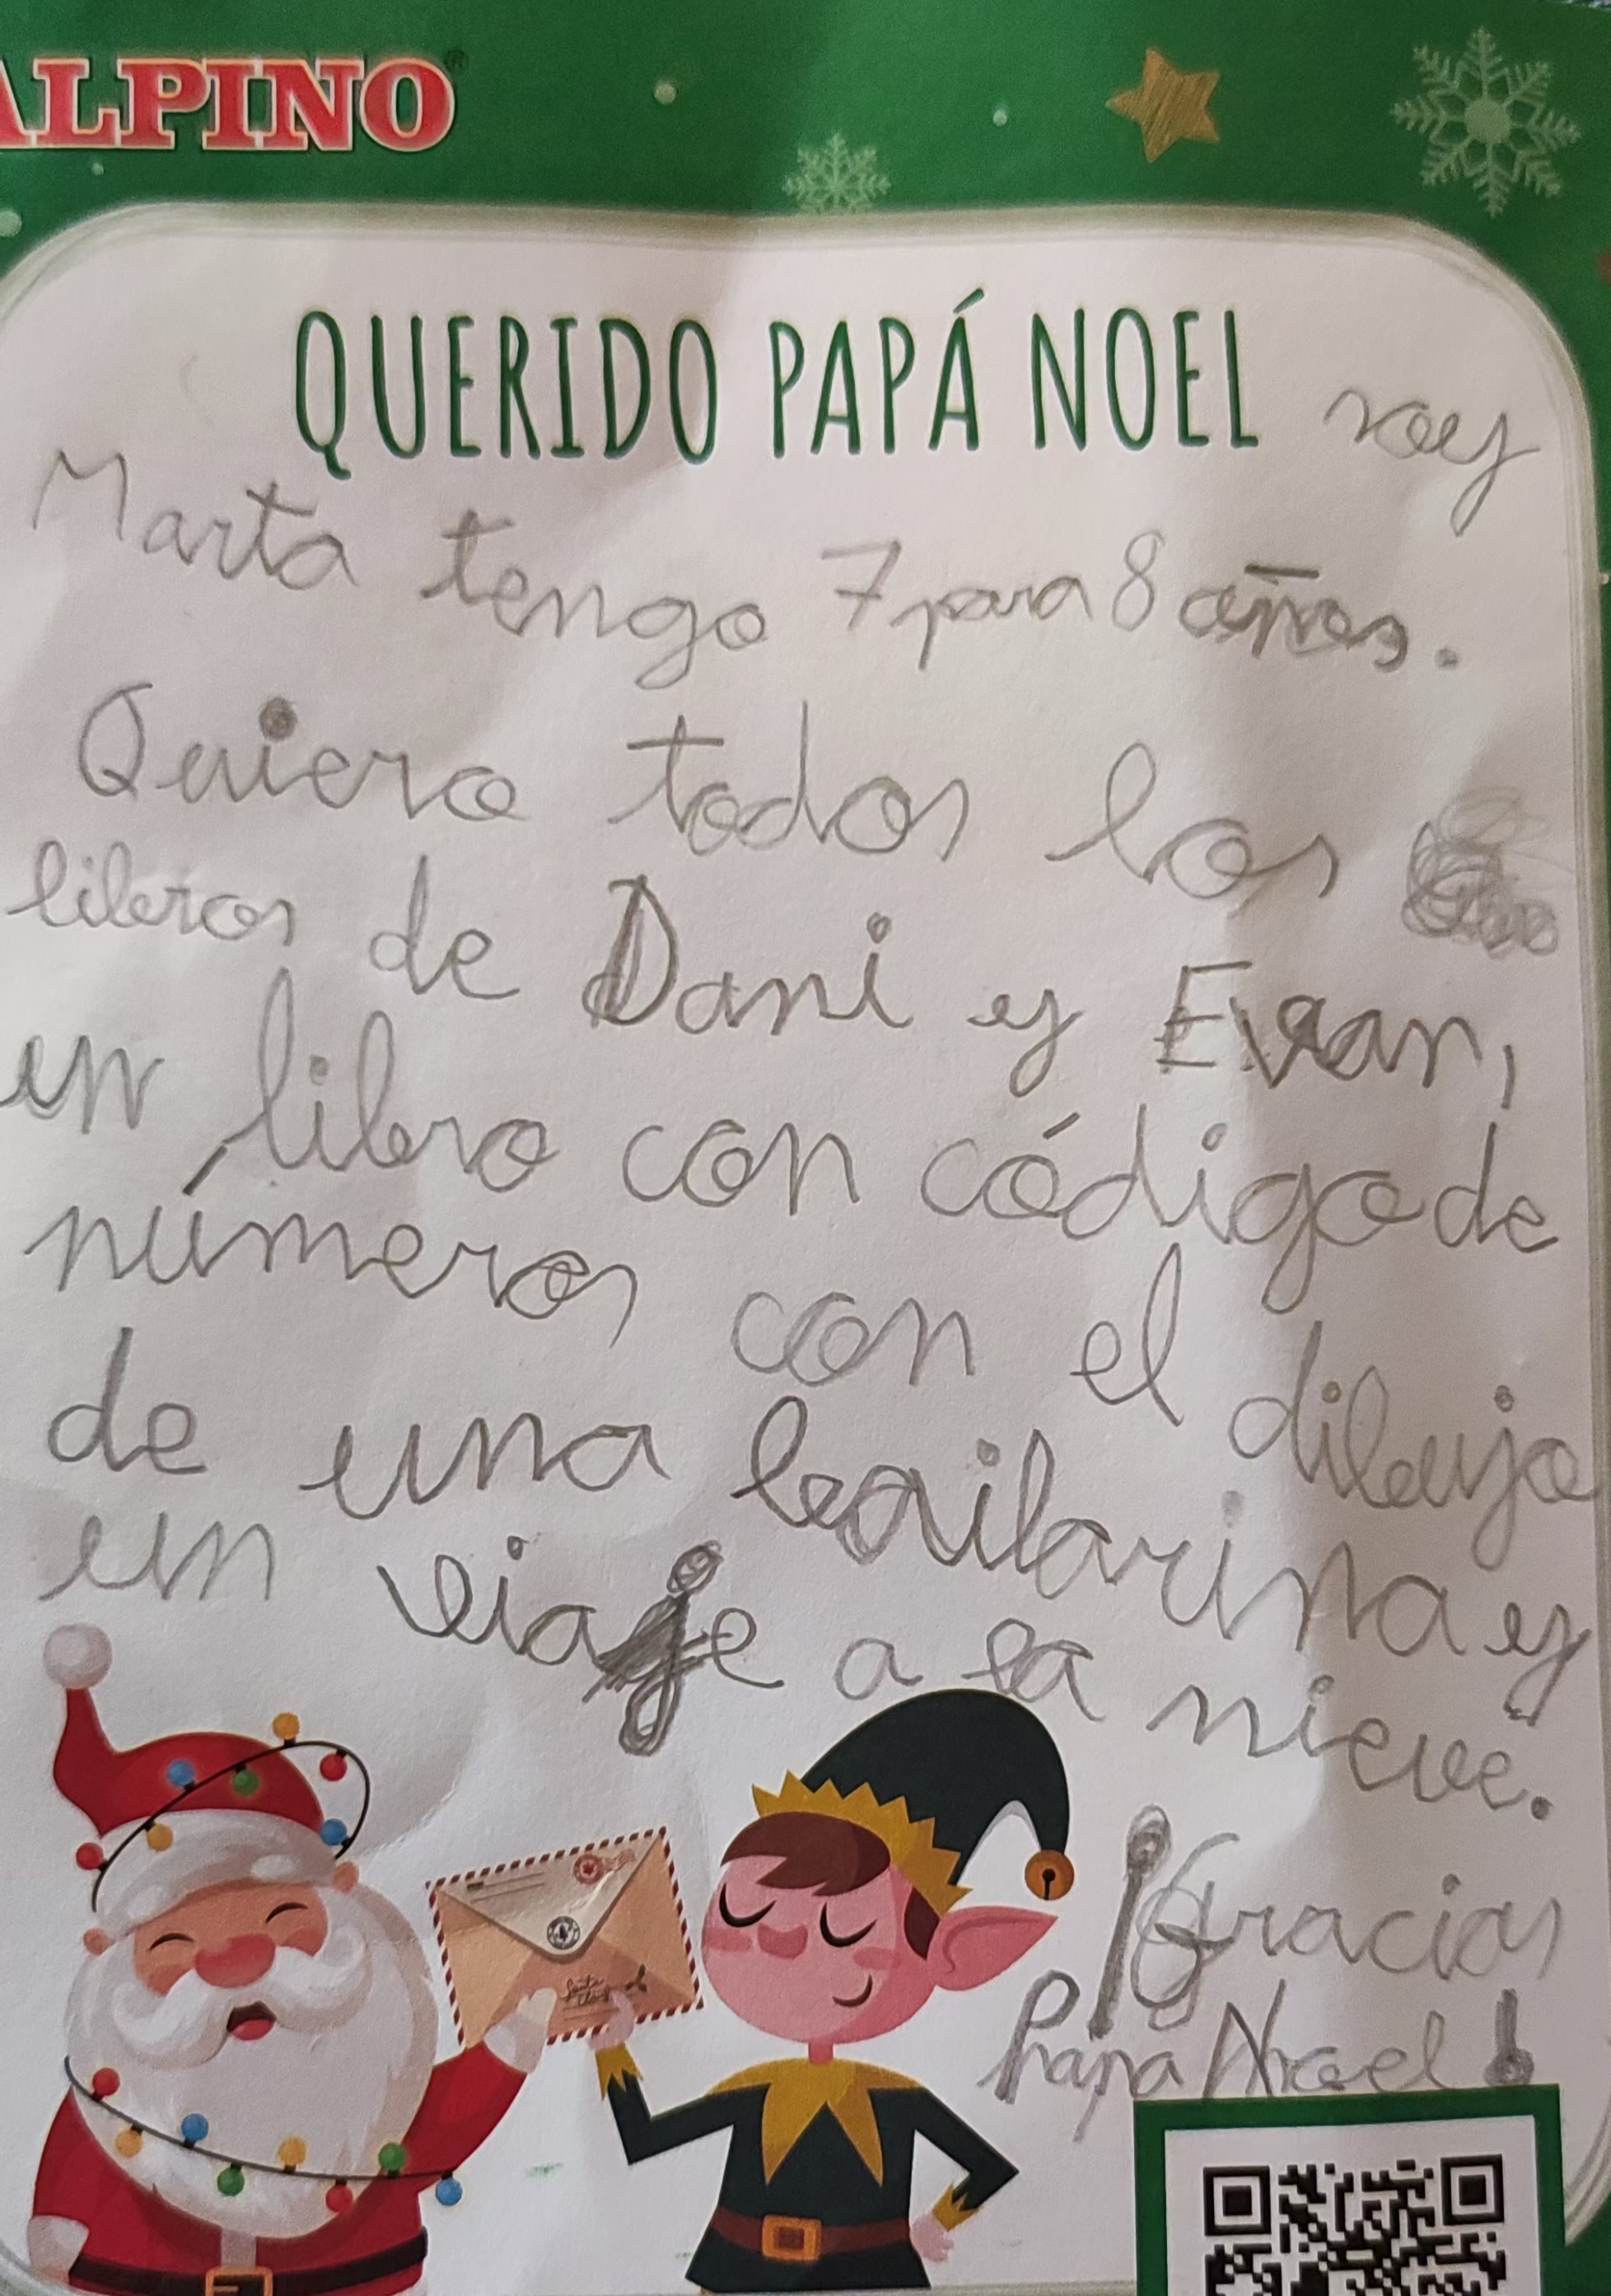 ALPINO
QUERIDO PAPÁ NOEL soy
Marta tengo 7 para 8 años.
Quiero todos los
libros de Dani y Evan,
un libro con código de
números con el dibujo
de una bailarina y
un viaje a la nieve.
¡Gracias
Papa Noel!
Santa
Claus